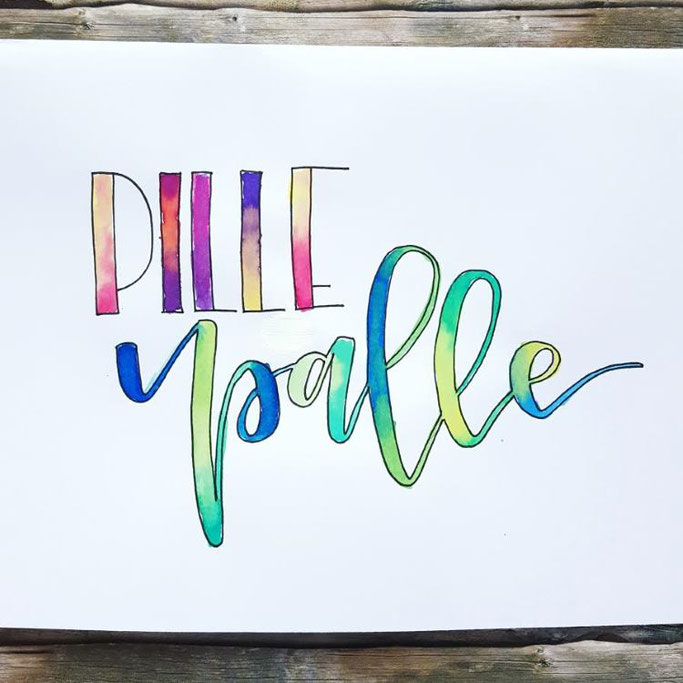 DILLE
palle